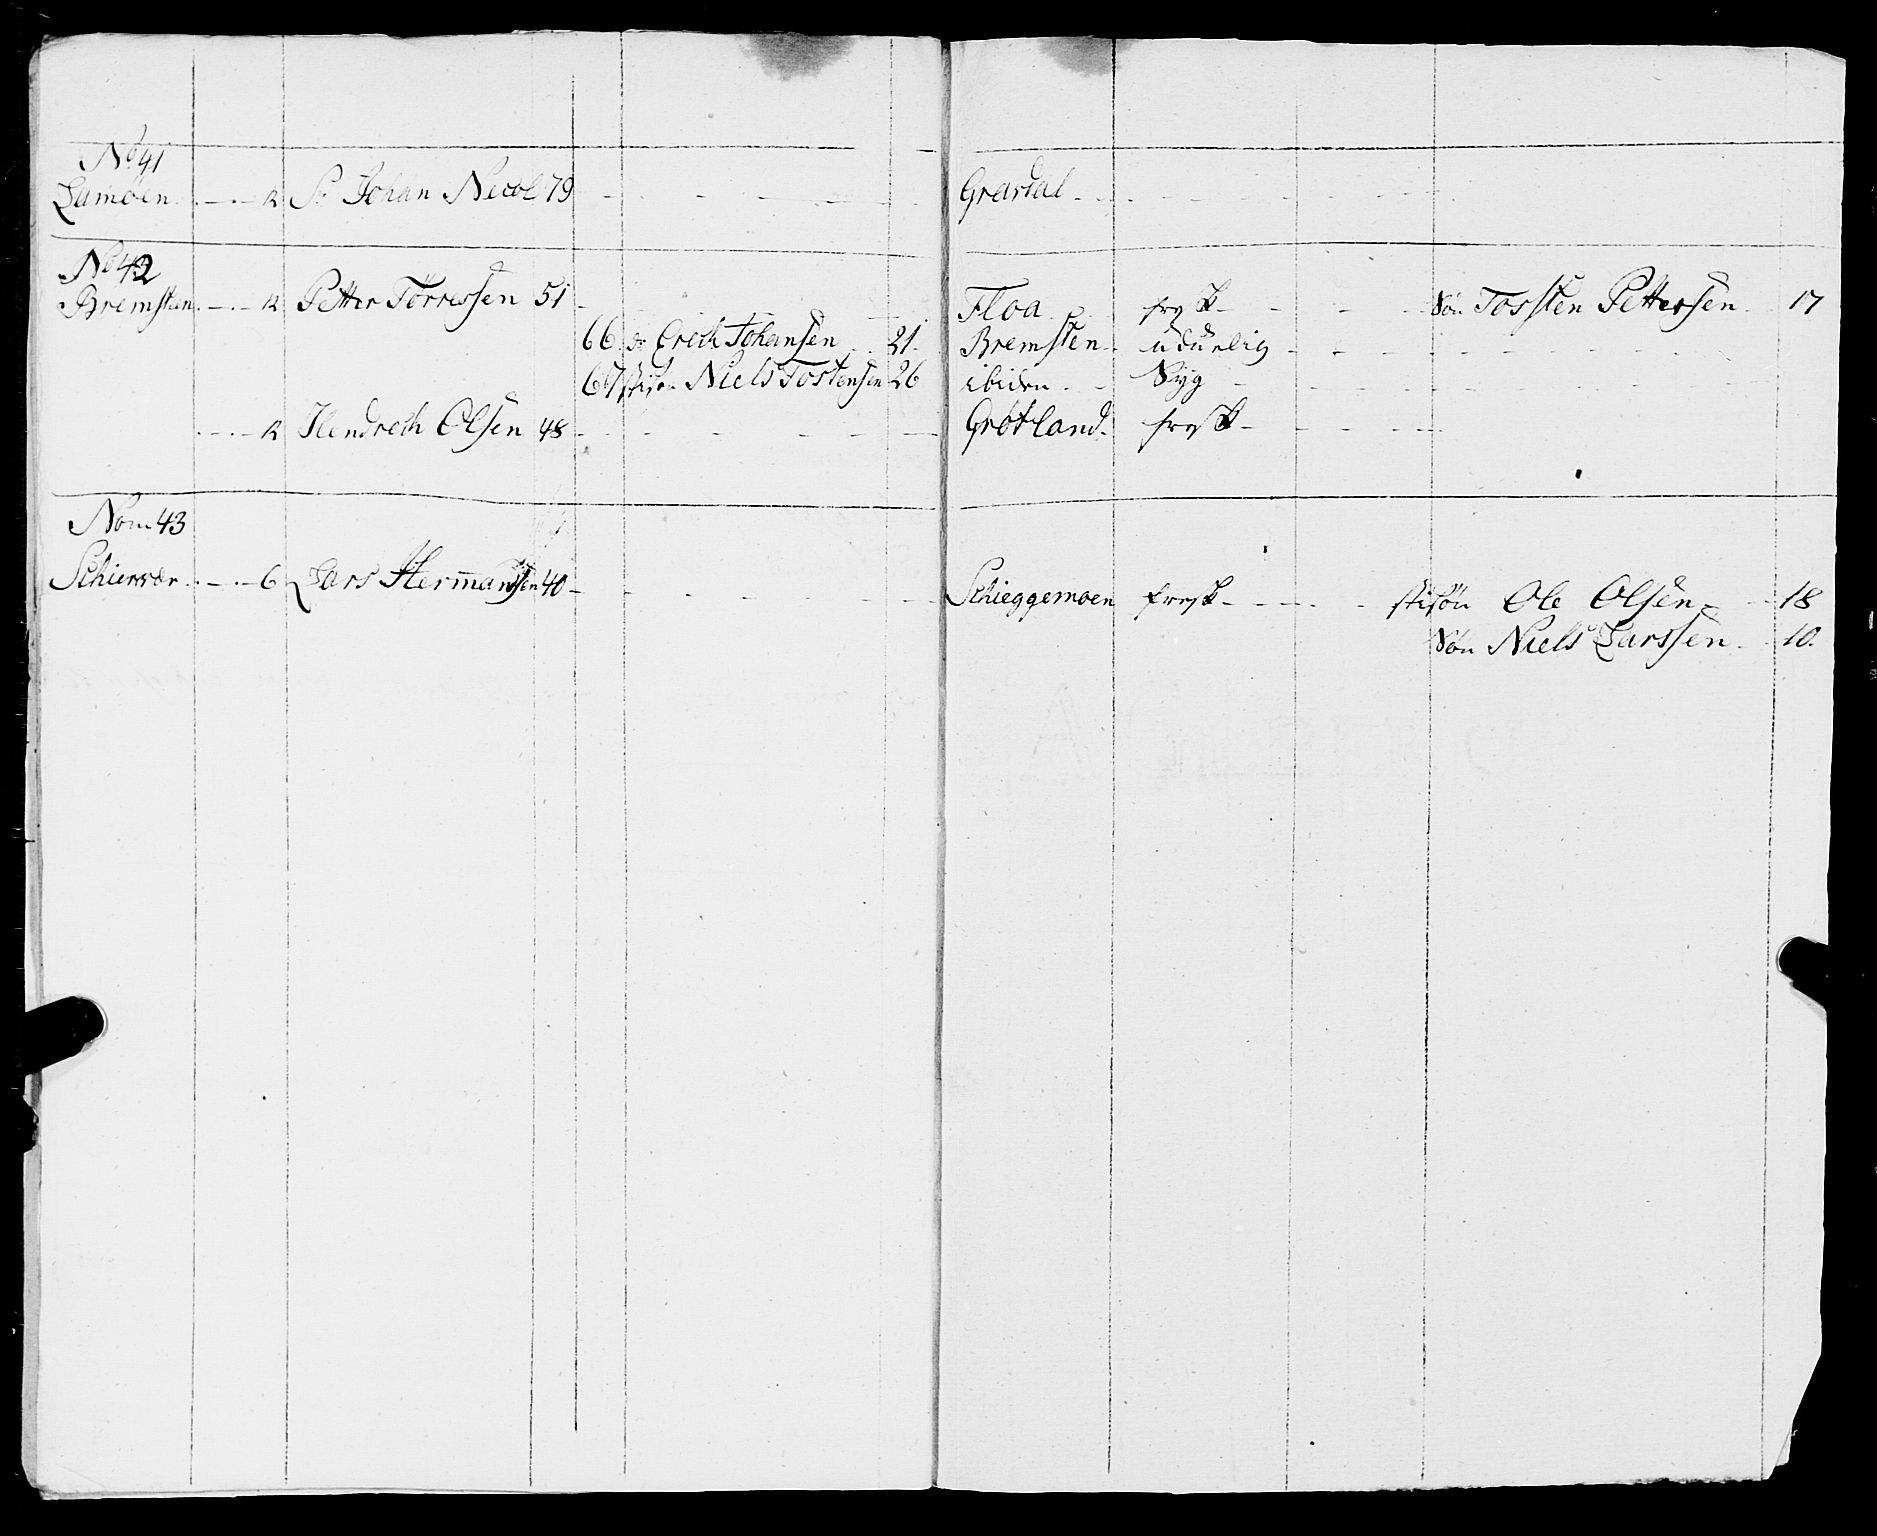 No 41
Lamoen R Sr Johan Necol 79 Grasdal
No 42
Bremsteen R Petter Törressen 51 Floa frysk Sön Tossten Pettersen 17
66 Erech Johansen 21 Bremsten udurlig
67 stifs. Niels Tostensen 26 ibidem Syg
R Hendrech Olsen 48 Grotland frysk
Nom 43
Schiervær 6 Lars Hermansen 40 Schieggemoen frysk stisön Ole Olsen 18
Sön Niels Larssen 10